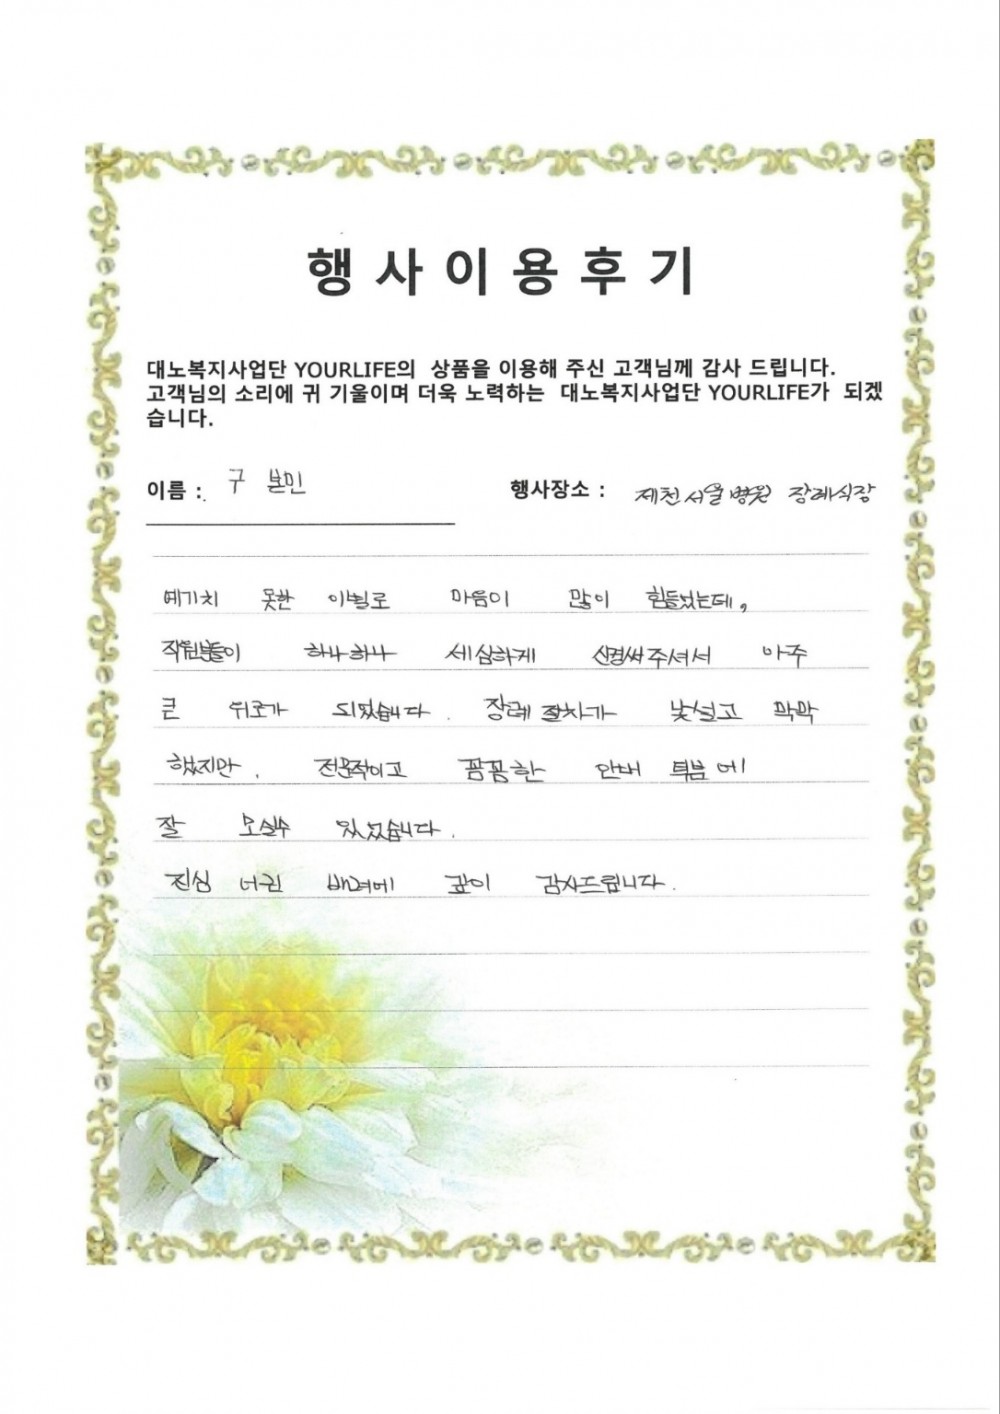 행사이용후기
대노복지사업단 YOURLIFE의 상품을 이용해 주신 고객님께 감사 드립니다.
고객님의 소리에 귀 기울이며 더욱 노력하는 대노복지사업단 YOURLIFE가 되겠
습니다.
이름 : 구 본민 행사장소 : 제천서울병원 장례식장
예기치 못한 이별로 마음이 많이 힘들었는데,
직원분들이 하나하나 세심하게 신경써주셔서 아주
큰 위로가 되었습니다. 장례 절차가 낯설고 막막
했지만, 전문적이고 꼼꼼한 안내 덕분에
잘 모실수 있었습니다.
진심 어린 배려에 깊이 감사드립니다.